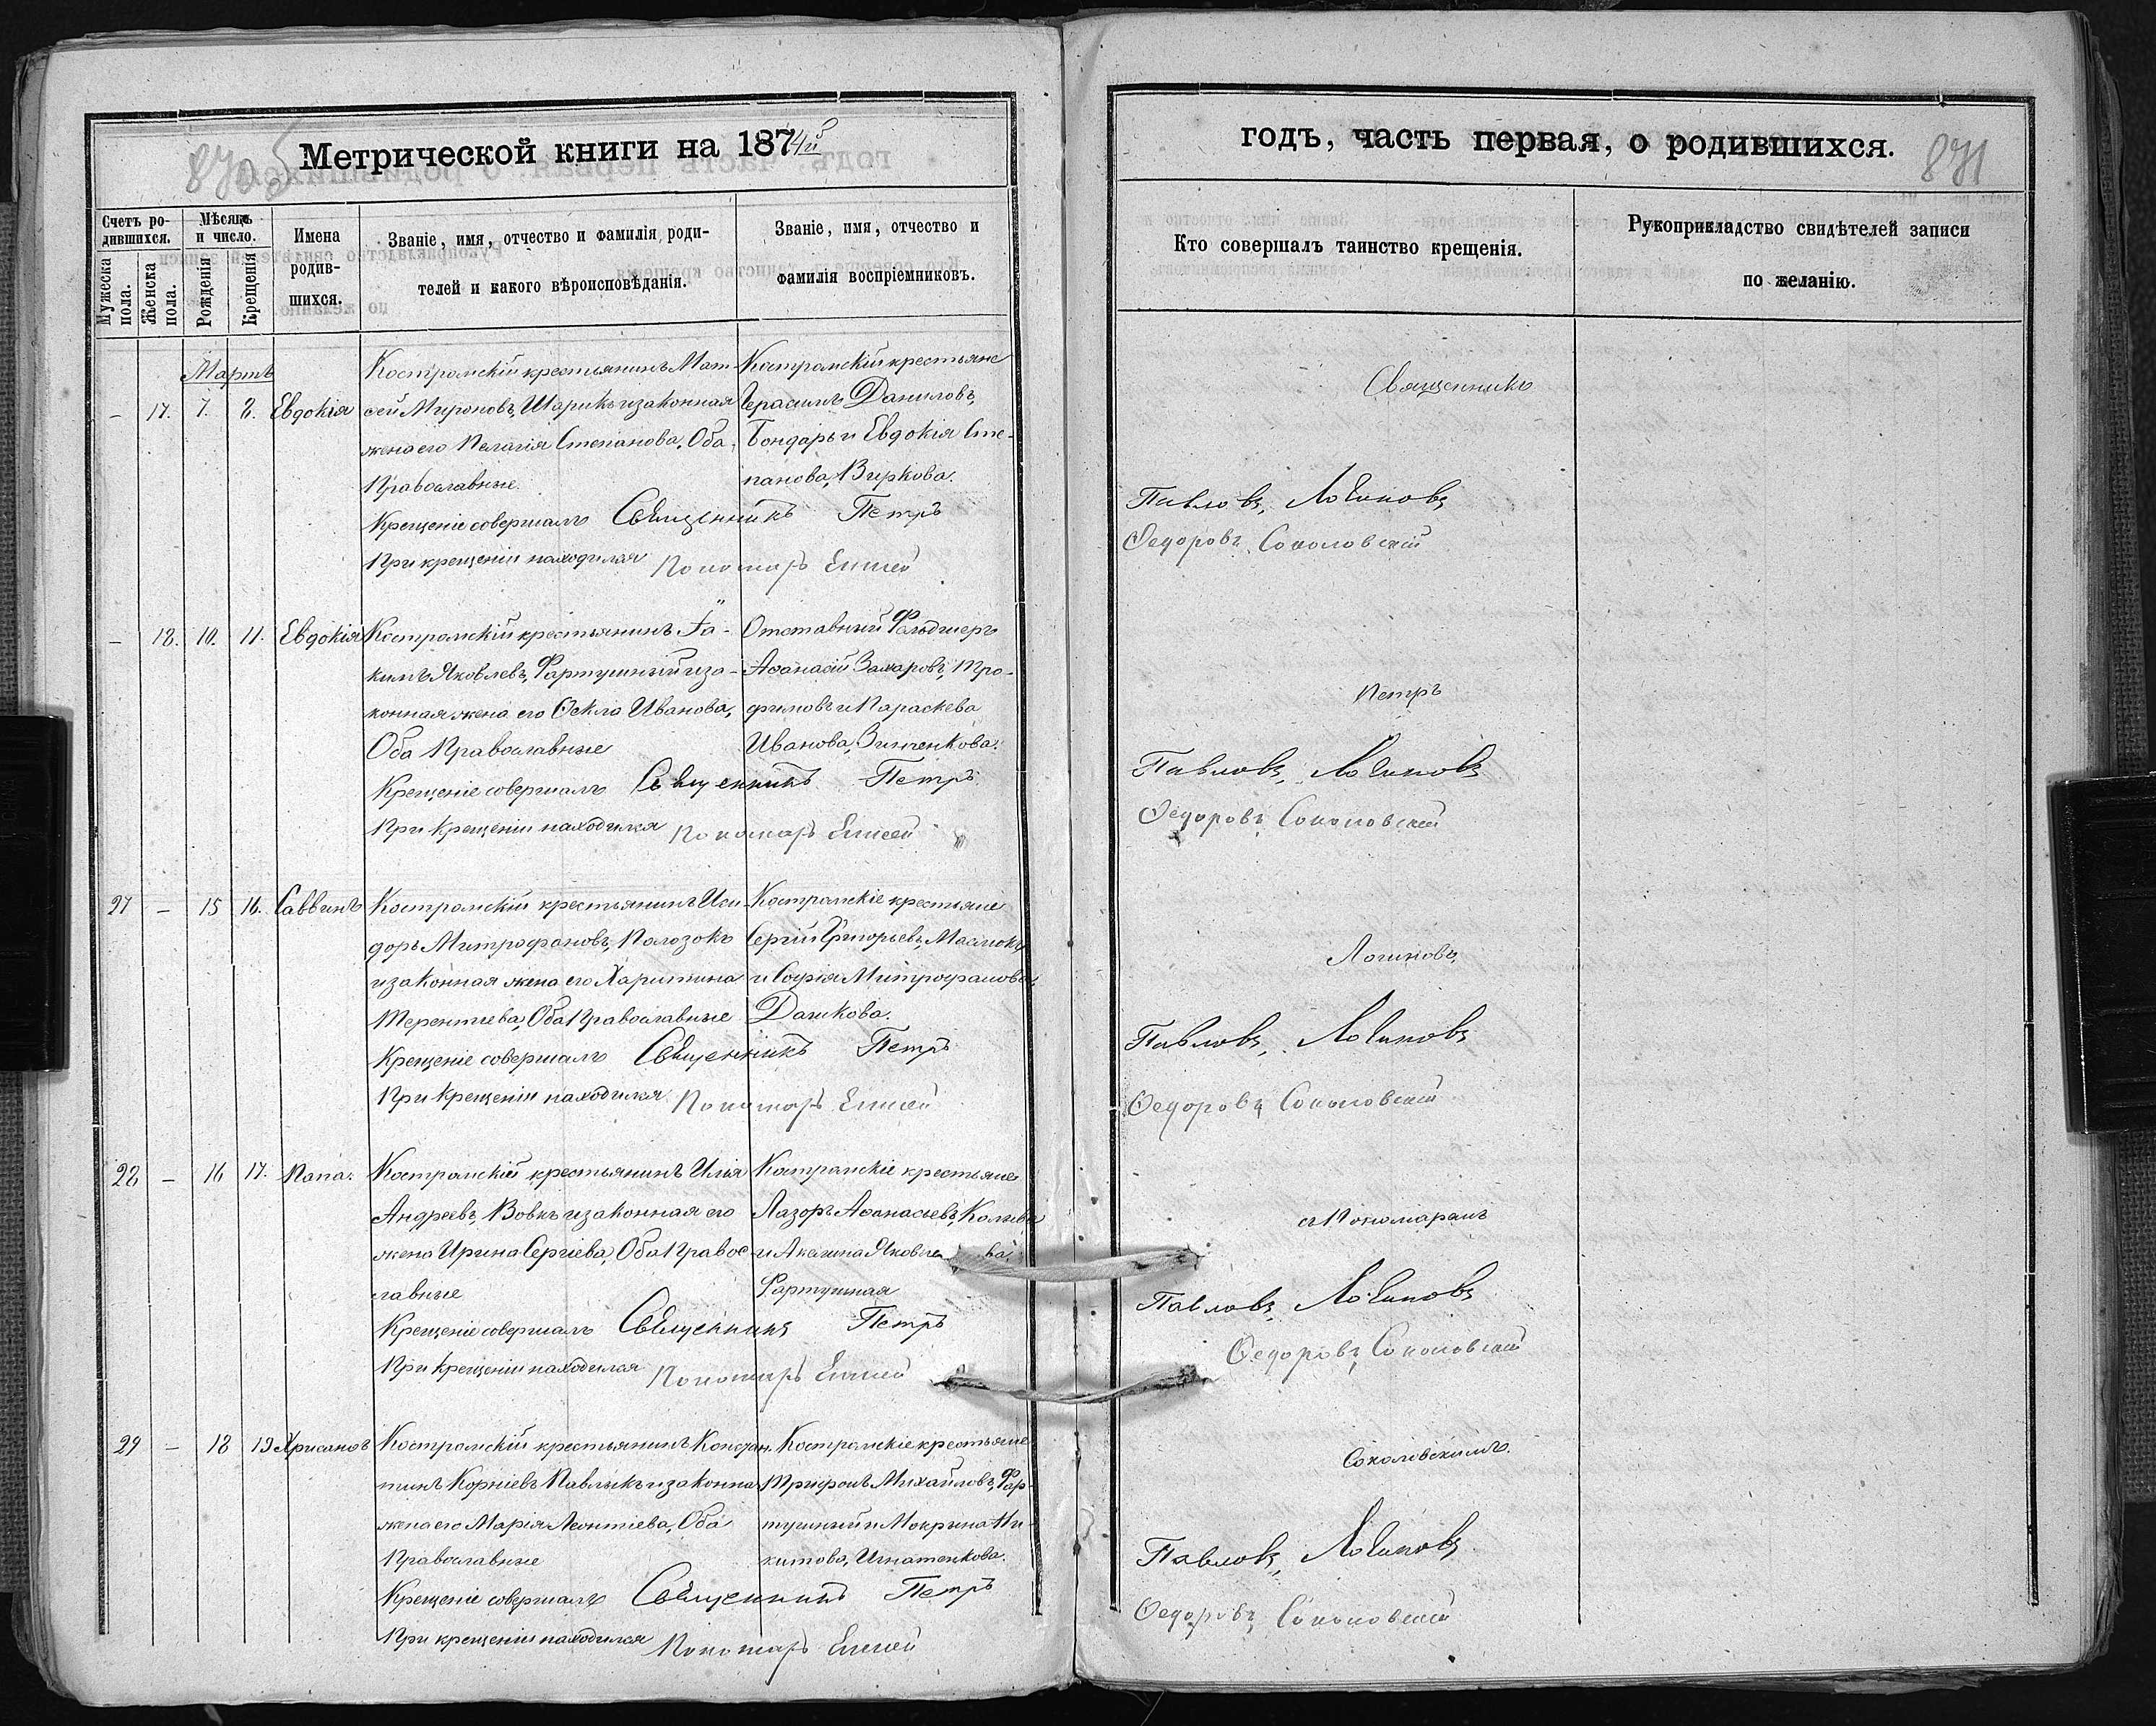 870 об
Метрической книги на 1874й
Счетъ ро-
дившихся.
Мужеска
пола.
Женска
пола.
Мѣсяцъ
и число.
Рожденія
Крещенія
Имена
родив-
шихся.
Званіе, имя, отчество и фамилія роди-
телей и какого вѣроисповѣданія.
Званіе, имя, отчество и
фамилія воспріемниковъ.
Мартъ
– 17. 7. 8. Евдокія
Костромскій крестьянинъ Мат-
ѳей Мироновъ, Шарикъ и законная
жена его Пелагія Степанова, Оба
Православные.
Костромскій крестьяне
Герасимъ Даниловъ,
Бондарь и Евдокія Сте-
панова, Виркова.
Крещеніе совершалъ Священникъ Петръ
При крещеніи находился Пономарь Елисей
– 18. 10. 11. Евдокія
Костромскій крестьянинъ Іа-
кимъ Яковлевъ, Фартушный и за-
конная жена его Ѳекла Иванова,
Оба Православные
Отставный Фельдшеръ
Аѳанасій Захаровъ, Тро-
фимовъ и Параскева
Иванова, Зинченкова.
Крещеніе совершалъ Священникъ Петръ
При крещеніи находился Пономарь Елисей
27 – 15 16. Саввинъ
Костромскій крестьянинъ Иси-
доръ Митрофановъ, Полозокъ
и законная жена его Харитина
Терентіева, Оба Православные
Костромскіе крестьяне
Сергій Григорьевъ, Маслюкъ
и Софія Митрофанова,
Дашкова.
Крещеніе совершалъ Священникъ Петръ
При крещеніи находился Пономарь Елисей
28 – 16 17. Папа.
Костромскій крестьянинъ Илія
Андреевъ, Вовкъ и законная его
жена Ирина Сергіева, Оба Правос-
лавные
Костромскіе крестьяне
Лазорь Аѳанасьевъ,
и Акилина Яковлева,
Фартушная
Крещеніе совершалъ Священникъ Петръ
При крещеніи находился Пономарь Елисей
29 – 18 19 Хрисанѳъ
Костромскій крестьянинъ Констан-
тинъ Корніевъ Павлыкъ и законная
жена его Марія Леонтіева, Оба
Православные
Костромскіе крестьяне
Трифонъ Михайловъ, Фар-
тушный и Мокрина Ни-
китова, Игнатенкова.
Крещеніе совершалъ Священникъ Петръ
При крещеніи находился Пономарь Елисей
годъ, часть первая, о родившихся.
871
Кто совершалъ таинство крещенія.
Рукоприкладство свидѣтелей записи
по желанію.
Священникъ
Павловъ, Логиновъ
Ѳедоровъ Соколовскій
Петръ
Павловъ, Логиновъ
Ѳедоровъ Соколовскій
Логиновъ,
Павловъ, Логиновъ
Ѳедоровъ Соколовскій
съ Пономаремъ
Павловъ, Логиновъ
Ѳедоровъ, Соколовскій
Соколовскимъ.
Павловъ, Логиновъ
Ѳедоровъ, Соколовскій